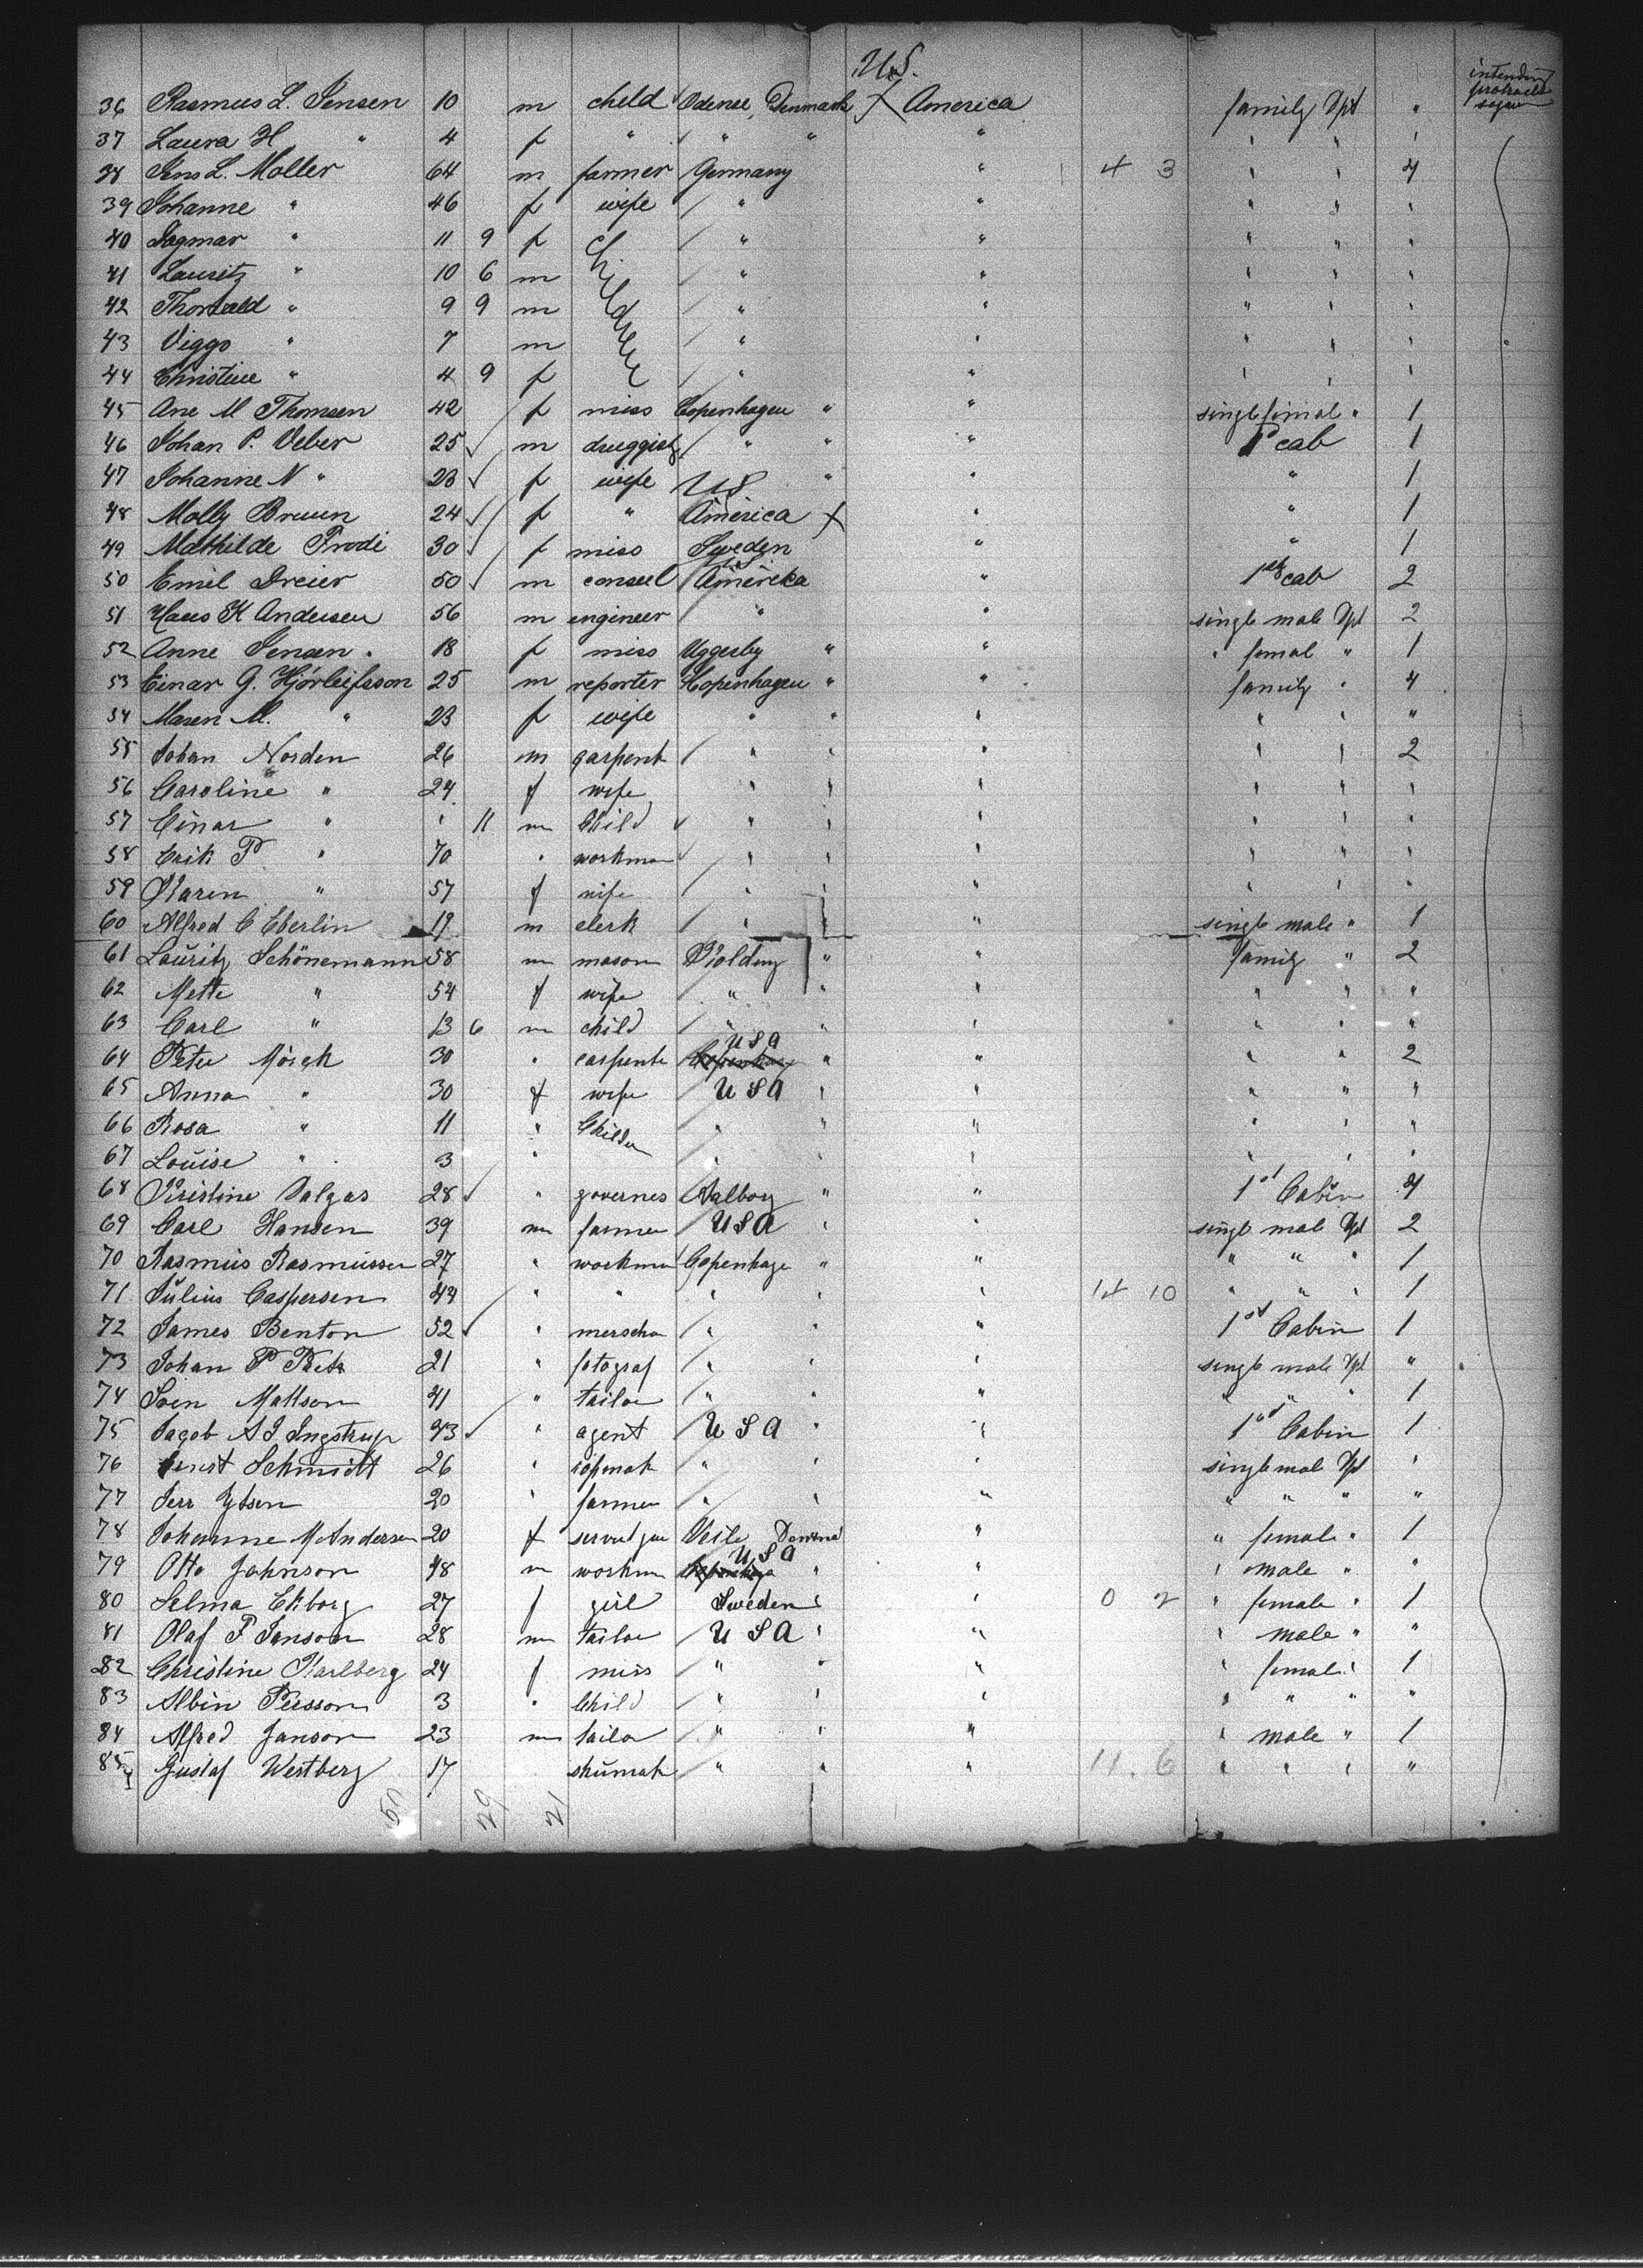 U.S.
intending protracted sojourn
36 Rasmus L. Jensen 10 m child Odense, Denmark X America family Dpt "
37 Laura H " 4 f " " " " " " "
38 Jens L. Moller 64 m farmer Germany " 4 3 " " 4
39 Johanne " 46 f wife " " " " "
40 Dagmar " 11 9 f children " " " " "
41 Lauritz " 10 6 m " " " " "
42 Thorvald " 9 9 m " " " " "
43 Viggo " 7 m " " " " "
44 Christine " 4 9 f " " " " "
45 Ane M Thomsen 42 f miss Copenhagen " " single femal " 1
46 Johan P. Veber 25 m druggist " " " 1st cab 1
47 Johanne N " 23 f wife US " " " 1
48 Molly Bruun 24 f " America X " " 1
49 Mathilde Frodi 30 f miss Sweden " " 1
50 Emil Dreier 50 m consul America " 1st cab 2
51 Hans K Andersen 56 m engineer " " single male Dpt 2
52 Anne Jensen 18 f miss Uggerby " " " femal " 1
53 Einar G. Hjörleifsson 25 m reporter Copenhagen " " family " 4
54 Maren M. " 23 f wife " " " " " "
55 Johan Norden 26 m carpent " " " " " 2
56 Caroline " 24 f wife " " " " " "
57 Einar " " 11 m Child " " " " " "
58 Erik P " 70 " workman " " " " " "
59 Karen " 57 f wife " " " " " "
60 Alfred C Eberlin 19 m clerk " " " single male " 1
61 Lauritz Schönemann 58 m mason Kolding " " family " 2
62 Mette " 54 f wife " " " " " "
63 Carl " 13 6 m child " " " " " "
64 Peter Mörch 30 " carpente USA " " " " 2
65 Anna " 30 f wife USA " " " " "
66 Rosa " 11 " Childn " " " " " "
67 Louise " 3 " " " " " " "
68 Kristine Dalgas 28 " governes Aalborg " " 1st Cabin 4
69 Carl Hansen 39 m farmer USA " " single male Dpt 2
70 Rasmus Rasmussen 27 " workman Copenhage " " " " " 1
71 Julius Caspersen 44 " " " " " 14 10 " " " 1
72 James Benton 52 " merscha " " " 1st Cabin 1
73 Johan P 21 " fotograf " " " single male Dpt "
74 Sven Mattson 41 " tailor " " " " " " 1
75 Jacob A J Ingstrup 43 " agent USA " " 1st Cabin 1
76 Ernst Schmidt 26 " " " " single male Dpt "
77 Jens 20 " farmer " " " " " " "
78 Johanne M Andersen 20 f Veile Denma " " female " 1
79 Otto Johnson 48 m workman USA " " " male " "
80 Selma Ekborg 27 f girl Sweden " " 0 2 " female " 1
81 Olaf P Janson 28 m tailor USA " " " male " "
82 Christine Karlberg 24 f miss " " " " female " 1
83 Albin Persson 3 " Child " " " " " " "
84 Alfred Janson 23 m tailor " " " " male " 1
85 Gustaf Westberg 17 shumak " " " 11. 6 " " " "
50 29 21